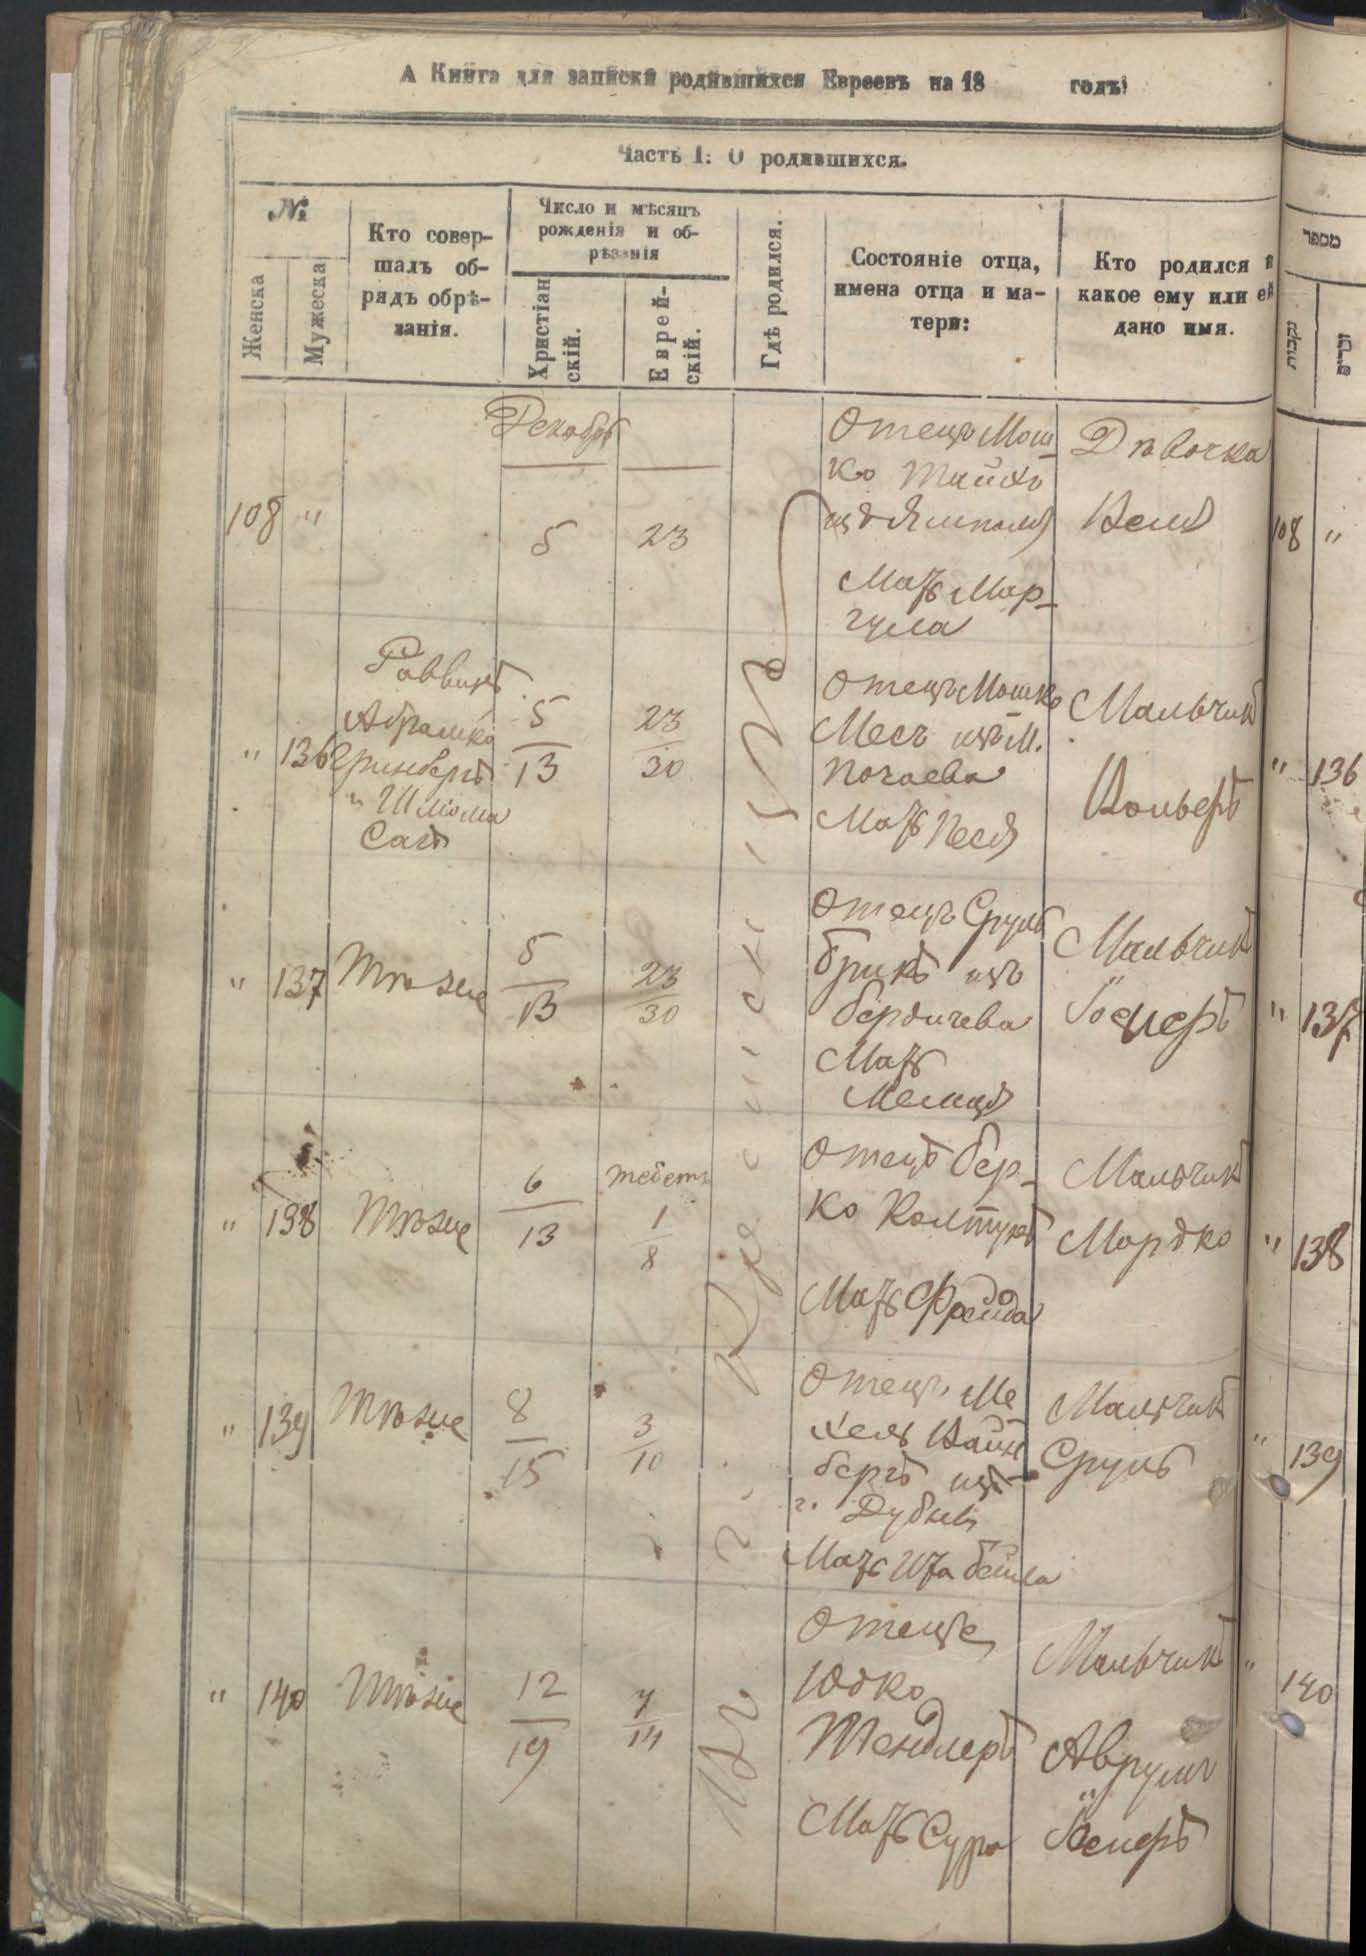 А Книга для записки родившихся Евреевъ на 18 годъ!
Часть I: О родившихся.
№
Женска
Мужеска
Кто совер-
шалъ об-
рядъ обрѣ-
занія.
Число и мѣсяцъ
рожденія и об-
рѣзанія
Христіан
скій.
Еврей-
скій.
Гдѣ родился.
Состояніе отца,
имена отца и ма-
тери:
Кто родился и
какое ему или ей
дано имя.
מספר
נקבות
זכרים
Декабрь
108 "
5
23
Отецъ Мош-
ко
Ямполя
Мать Мар-
гула
Дѣвочка
108 "
Въ г. Кременцѣ
" 136
Раввинъ
Абрамко
Гринбергъ
и Шлиома
Сагъ
5
13
23
30
Отецъ Мошко
Месъ изъ м.
Почаева
Мать Песя
Мальчикъ
Вольфъ
" 136
" 137
Тѣже
5
13
23
30
Отецъ Сруль
Брикъ изъ
Бердичева
Мать
Мальчикъ
" 137
" 138
Тѣже
6
13
тебетъ
1
8
Отецъ Бер-
ко Колтунъ
Мать Фрейда
Мальчикъ
Мордко
" 138
" 139
Тѣже
8
15
3
10
Отецъ Ме
хель Вайн
бергъ изъ
г. Дубны
Мать Ита Бейла
Мальчикъ
Сруль
" 139
" 140
Тѣже
12
19
7
14
Отецъ
Юдко
Тендлеръ
Мать Сура
Мальчикъ
Аврумъ
" 140